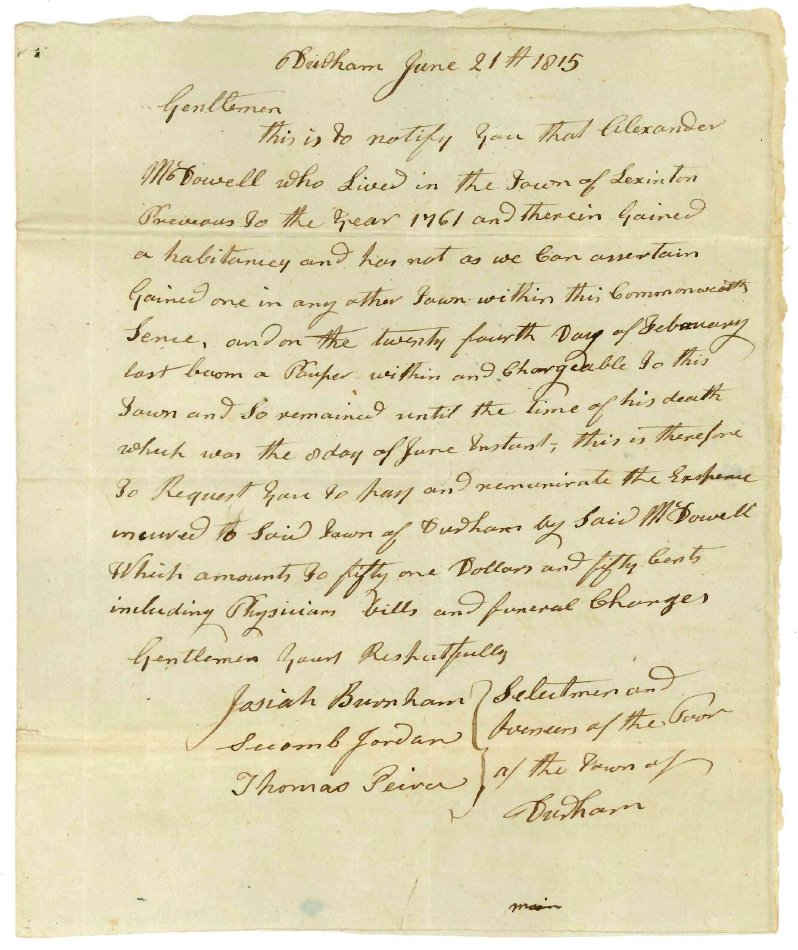 Durham June 21st 1815
Gentlemen
this is to notify you that Alexander
McDowell who Lived in the Town of Lexinton
Previous to the Year 1761 and therein Gained
a habitancy and has not as we Can assertain
Gained one in any other Town within this Commonwealth
Sence, and on the twenty fourth Day of February
last becom a Pauper within and Chargeable to this
Town and So remained until the time of his death
which was the 8 day of June Instant, this is therefore
to Request You to pay and remunirate the Expence
incured to Said Town of Durham by Said McDowell
Which amounts to fifty one Dollars and fifty Cents
including Physicians bills and funeral Charges
Gentlemen Yours Respectfully
Josiah Burnham Selectmen and
Secomb Jordan Overseers of the Poor
Thomas Peirce of the Town of
Durham
main